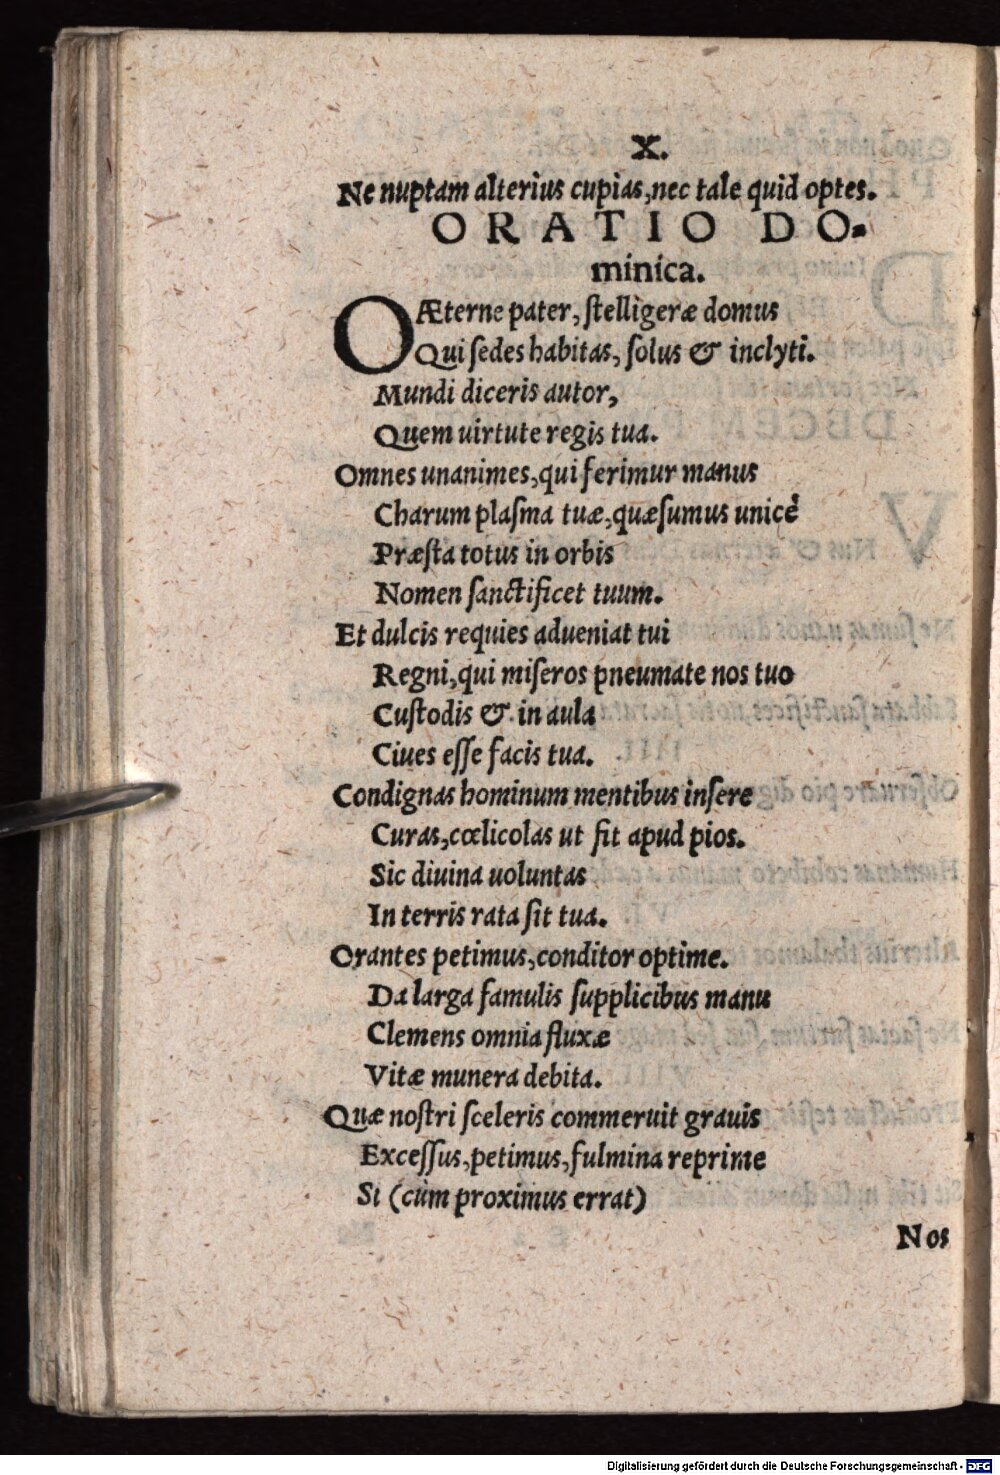 X.
Ne nuptam alterius cupias, nec tale quid optes.
ORATIO DO-
minica.
O Æterne pater, ſtelligeræ domus
Qui ſedes habitas, ſolus & inclyti.
Mundi diceris autor,
Quem uirtute regis tua.
Omnes unanimes, qui ferimur manus
Charum plaſma tuæ, quæſumus unicè
Præſta totus in orbis
Nomen ſanctificet tuum.
Et dulcis requies adueniat tui
Regni, qui miſeros pneumate nos tuo
Cuſtodis & in aula
Ciues eſſe facis tua.
Condignas hominum mentibus inſere
Curas, cœlicolas ut fit apud pios.
Sic diuina uoluntas
In terris rata ſit tua.
Orantes petimus, conditor optime.
Da larga famulis ſupplicibus manu
Clemens omnia fluxæ
Vitæ munera debita.
Quæ noſtri ſceleris commeruit grauis
Exceſſus, petimus, fulmina reprime
Si (cùm proximus errat)
Nos
Digitalisierung gefördert durch die Deutsche Forschungsgemeinschaft - DFG